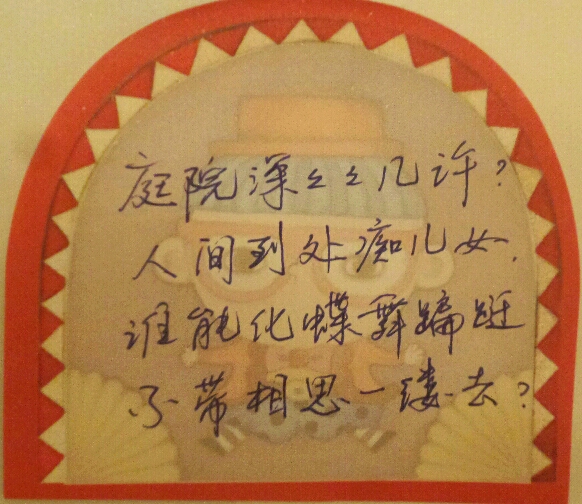 庭院深々々几许？
人间到处痴儿女，
谁能化蝶舞蹁跹
不带相思一缕去？